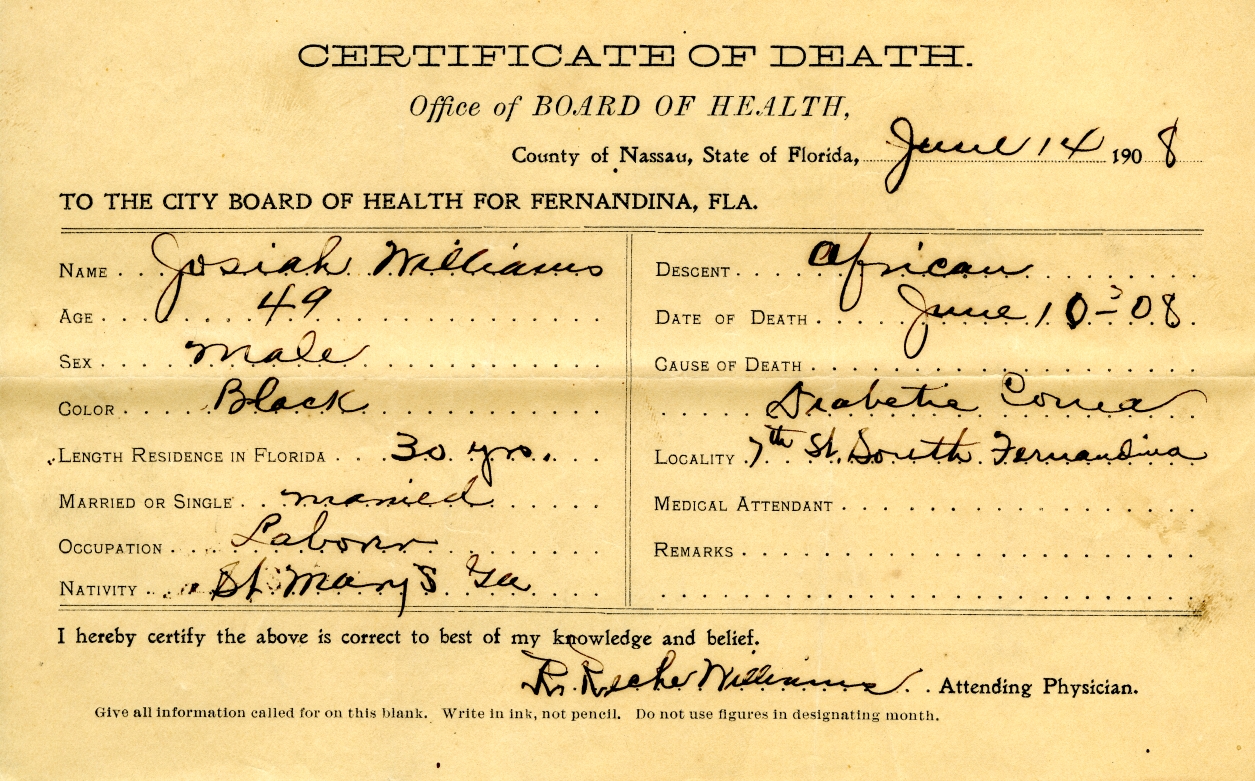 CERTIFICATE OF DEATH.
Office of BOARD OF HEALTH,
County of Nassau, State of Florida, June 14 1908
TO THE CITY BOARD OF HEALTH FOR FERNANDINA, FLA.
NAME Josiah Williams
AGE 49
SEX male
COLOR Black
LENGTH RESIDENCE IN FLORIDA 30 yrs.
MARRIED OR SINGLE married
OCCUPATION Laborer
NATIVITY St Mary's Ga
DESCENT African
DATE OF DEATH June 10 - 08
CAUSE OF DEATH
Diabetic Coma
LOCALITY 7th St. South Fernandina
MEDICAL ATTENDANT
REMARKS
I hereby certify the above is correct to best of my knowledge and belief.
Williams Attending Physician.
Give all information called for on this blank. Write in ink, not pencil. Do not use figures in designating month.